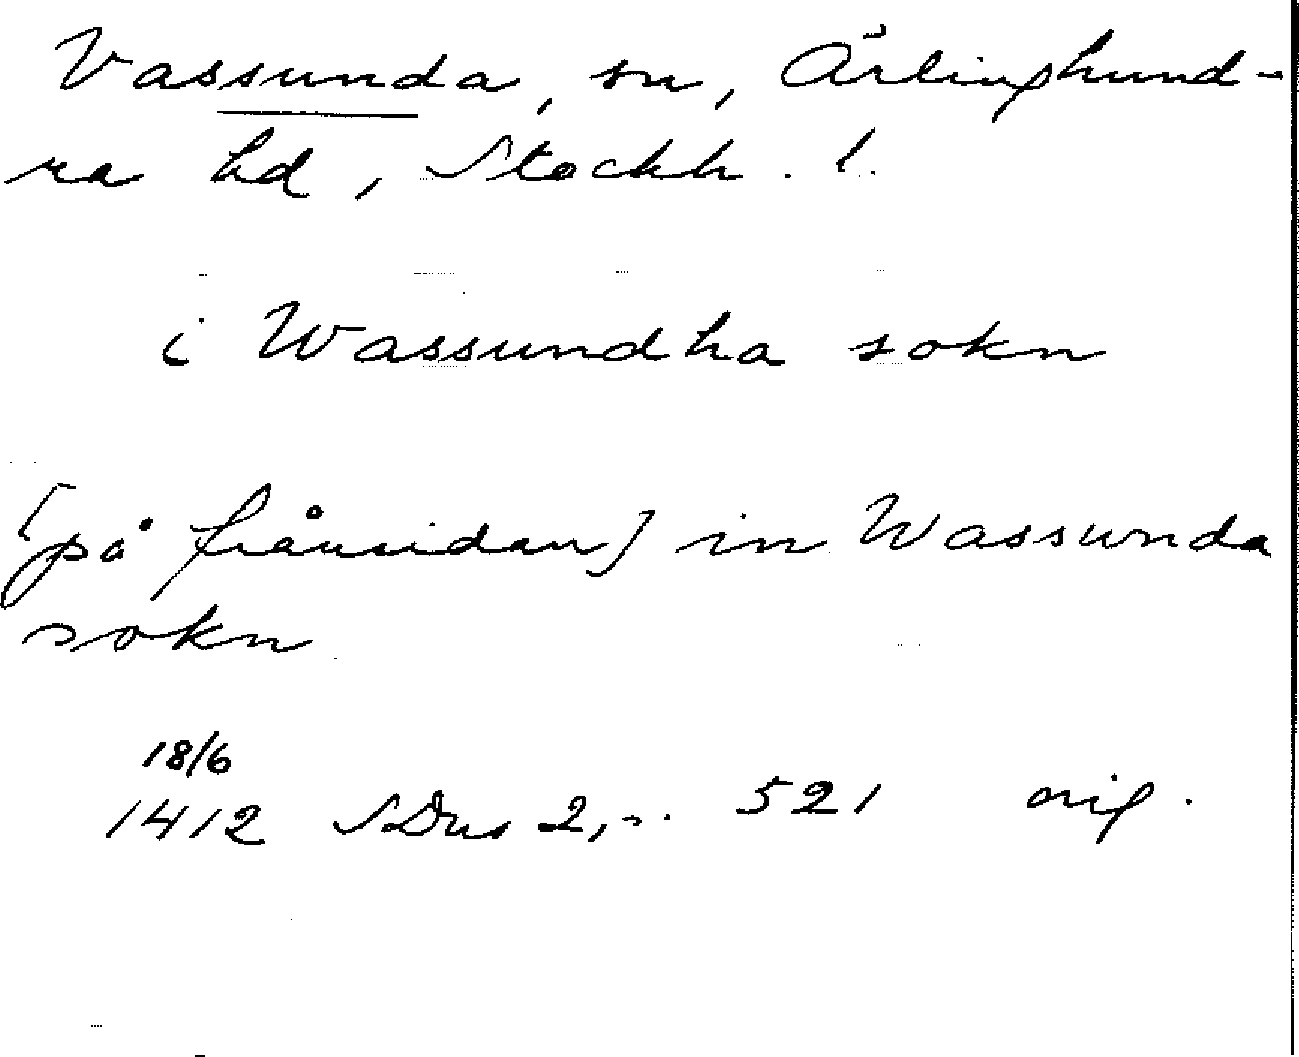 Vassunda, sn, Ärlinghund-
ra hd, Stockh. l.
i Wassundha sokn
[på frånsidan] in Wassunda
sokn
18/6
1412 SDns 2, s. 521 orig.